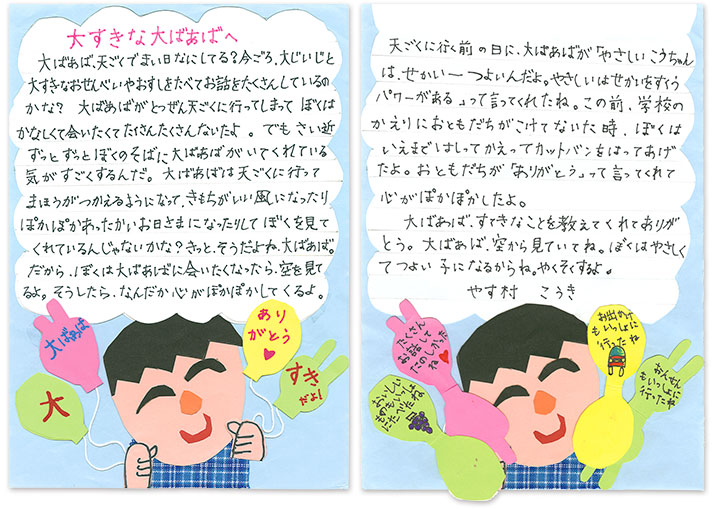 大すきな大ばあばへ
大ばあば、天ごくでまい日なにしてる?今ごろ、大じいじと
大すきなおせんべいやおすしをたべてお話をたくさんしているの
かな? 大ばあばがとつぜん天ごくに行ってしまって ぼくは
かなしくて会いたくて たくさんたくさんないたよ。でも さい近
ずっと ずっと ぼくのそばに大ばあばが いてくれている
気がすごくするんだ。大ばあばは 天ごくに行って
まほうがつかえるようになって、きもちがいい風になったり
ぽかぽかあったかいお日さまになったりして ぼくを見て
くれているんじゃないかな?きっと、そうだよね、大ばあば。
だから、ぼくは大ばあばに会いたくなったら、空を見て
るよ。そうしたら、なんだか心がぽかぽかしてくるよ。
大ばあば
あり
がとう
大
すき
だよ!
天ごくに行く前の日に、大ばあばが「やさしいこうちゃん
は、せかい一つよいんだよ。やさしいはせかいをすくう
パワーがある」って言ってくれたね。この前、学校の
かえりにおともだちがこけてないた時、ぼくは
いえまではしってかえってカットバンをはってあげ
たよ。おともだちが「ありがとう」って言ってくれて
心がぽかぽかしたよ。
大ばあば、すてきなことを教えてくれてありが
とう。大ばあば、空から見ていてね。ぼくはやさしく
てつよい子になるからね。やくそくするよ。
やす村 こうき
たくさん
お話し
たのしかった
ね
お出かけ
もいっしょに
行ったね
おんせん
もいっしょに
行ったね